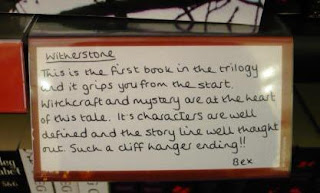 Witherstone
This is the first book in the trilogy
and it grips you from the start.
Witchcraft and mystery are at the heart
of this tale. It's characters are well
defined and the story line well thought
out. Such a cliff hanger ending!!
Bex